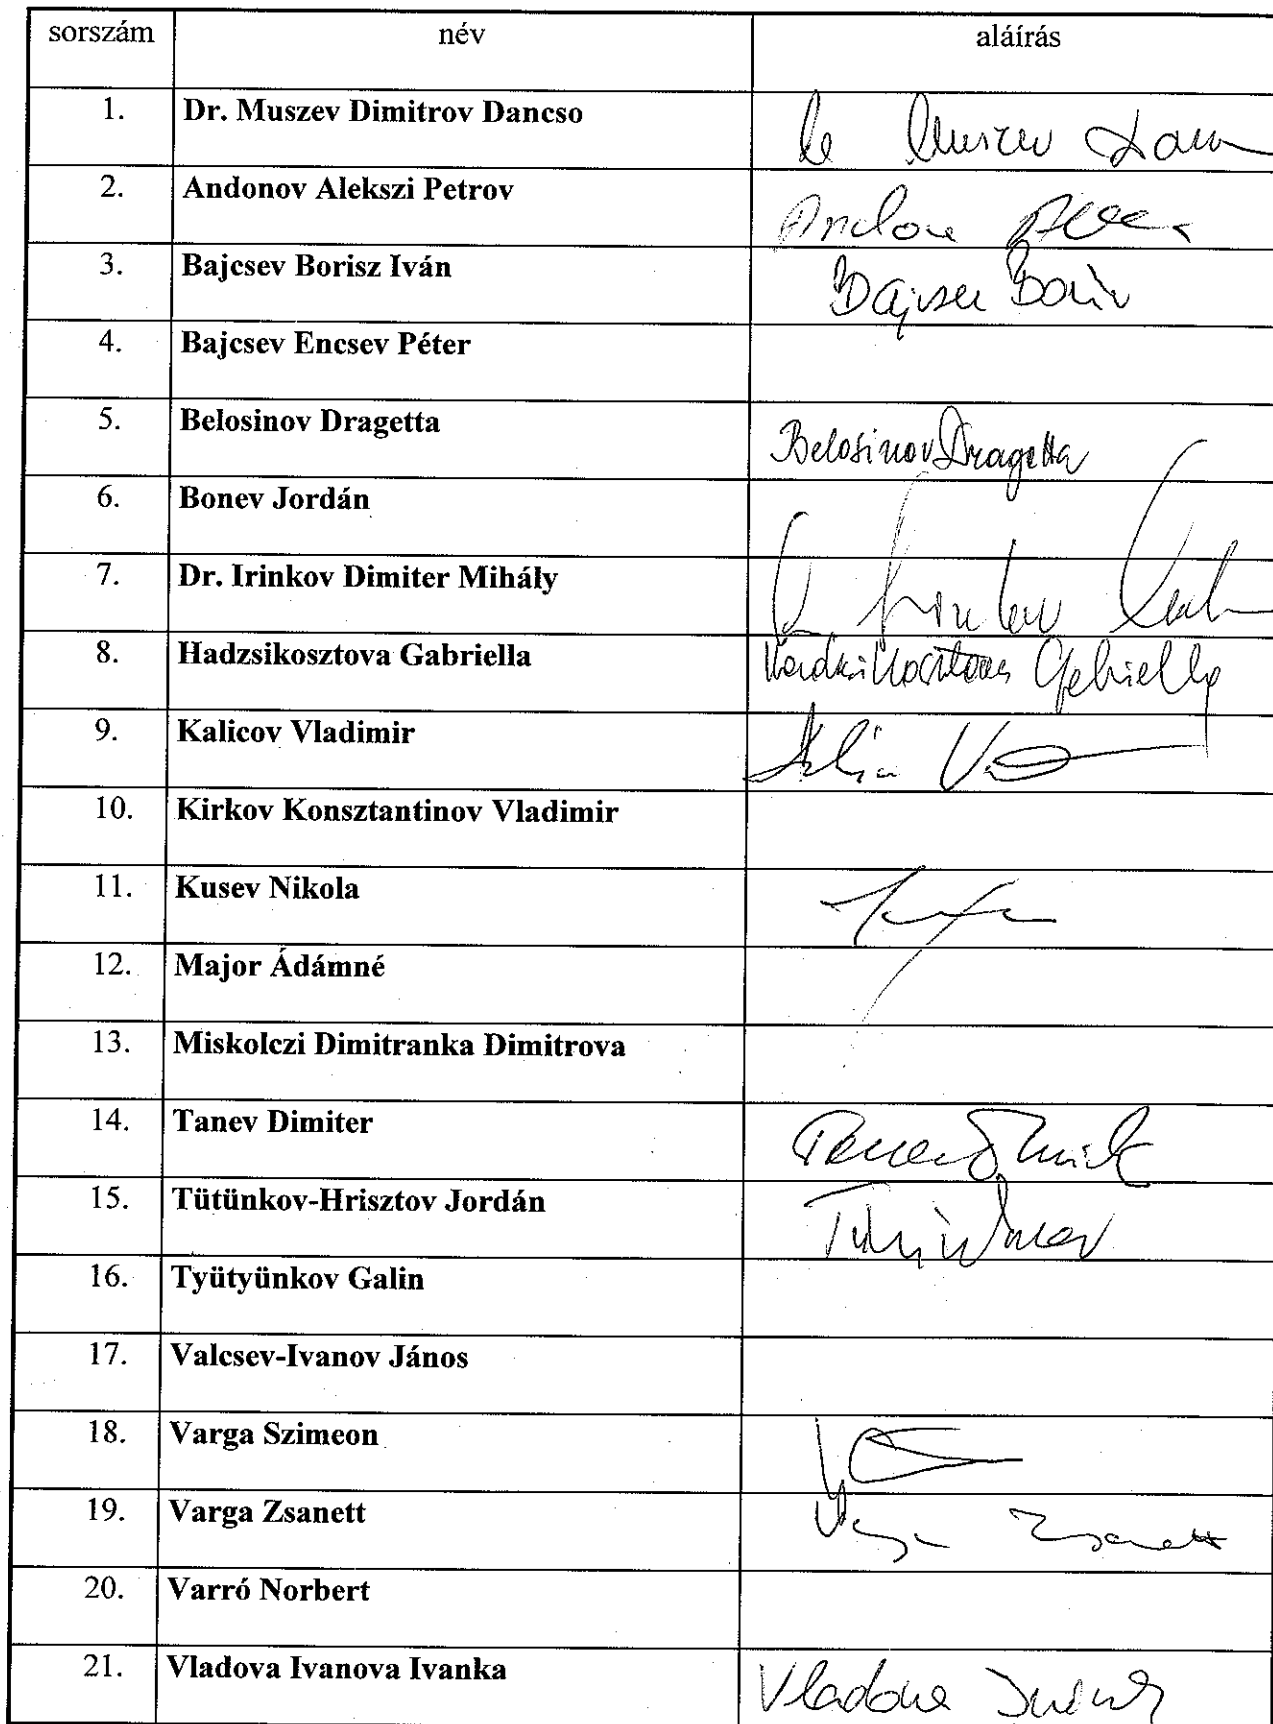 sorszám név aláírás
1. Dr. Muszev Dimitrov Dancso
2. Andonov Alekszi Petrov
3. Bajcsev Borisz Iván
4. Bajcsev Encsev Péter
5. Belosinov Dragetta Belosinov Dragetta
6. Bonev Jordán
7. Dr. Irinkov Dimiter Mihály
8. Hadzsikosztova Gabriella
9. Kalicov Vladimir
10. Kirkov Konsztantinov Vladimir
11. Kusev Nikola
12. Major Ádámné
13. Miskolczi Dimitranka Dimitrova
14. Tanev Dimiter
15. Tütünkov-Hrisztov Jordán
16. Tyütyünkov Galin
17. Valcsev-Ivanov János
18. Varga Szimeon
19. Varga Zsanett Zsanett
20. Varró Norbert
21. Vladova Ivanova Ivanka Vladova